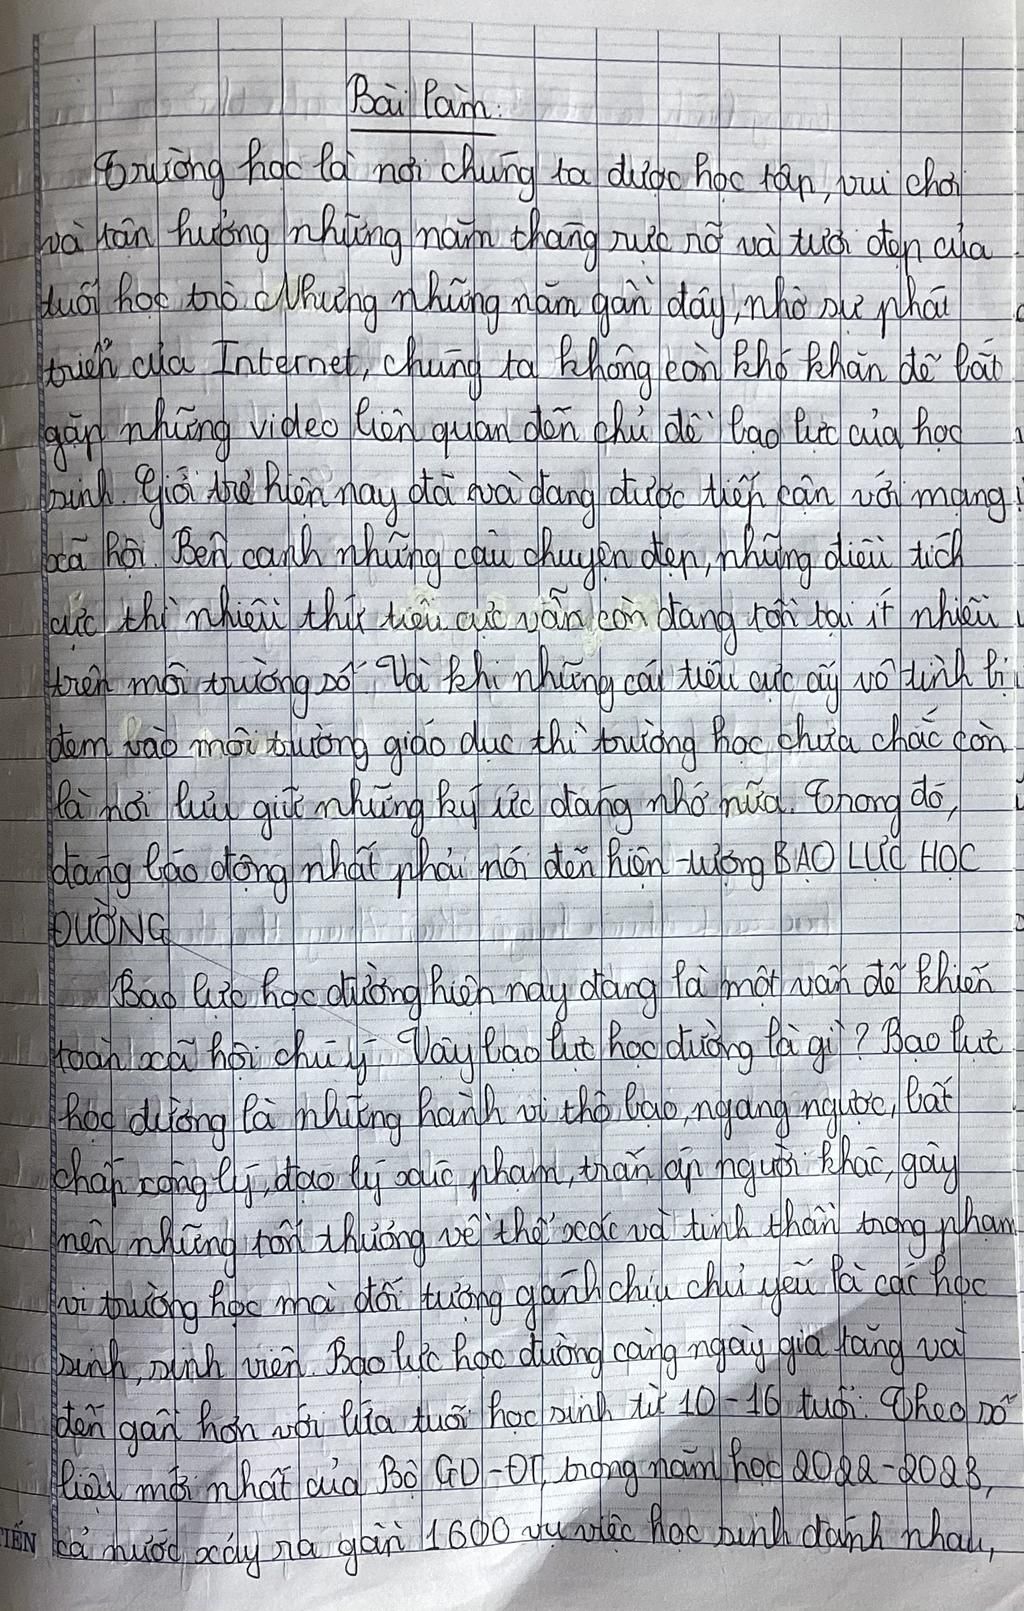 Bài làm:
Trường học là nơi chúng ta được học tập, vui chơi
và tận hưởng những năm tháng rực rỡ và tươi đẹp của
tuổi học trò. Nhưng những năm gần đây, nhờ sự phát
triển của Internet, chúng ta không còn khó khăn để bắt
gặp những video liên quan đến chủ đề bạo lực của học
sinh. Giới trẻ hiện nay đã và đang được tiếp cận với mạng
xã hội. Bên cạnh những câu chuyện đẹp, những điều tích
cực thì nhiều thứ tiêu cực vẫn còn đang tồn tại ít nhiều
trên môi trường số. Và khi những cái tiêu cực ấy vô tình bị
đem vào môi trường giáo dục thì trường học chưa chắc còn
là nơi lưu giữ những ký ức đáng nhớ nữa. Trong đó,
đáng báo động nhất phải nói đến hiện tượng BẠO LỰC HỌC
ĐƯỜNG
Bạo lực học đường hiện nay đang là một vấn đề khiến
toàn xã hội chú ý. Vậy bạo lực học đường là gì? Bạo lực
học đường là những hành vi thô bạo, ngang ngược, bất
chấp công lý, đạo lý xúc phạm, trấn áp người khác, gây
nên những tổn thương về thể xác và tinh thần trong phạm
vi trường học mà đối tượng gánh chịu chủ yếu là các học
sinh, sinh viên. Bạo lực học đường càng ngày gia tăng và
đến gần hơn với lứa tuổi học sinh từ 10-16 tuổi. Theo số
liệu mới nhất của Bộ GD-ĐT, trong năm học 2022-2023,
cả nước xảy ra gần 1600 vụ việc học sinh đánh nhau,
TIẾN